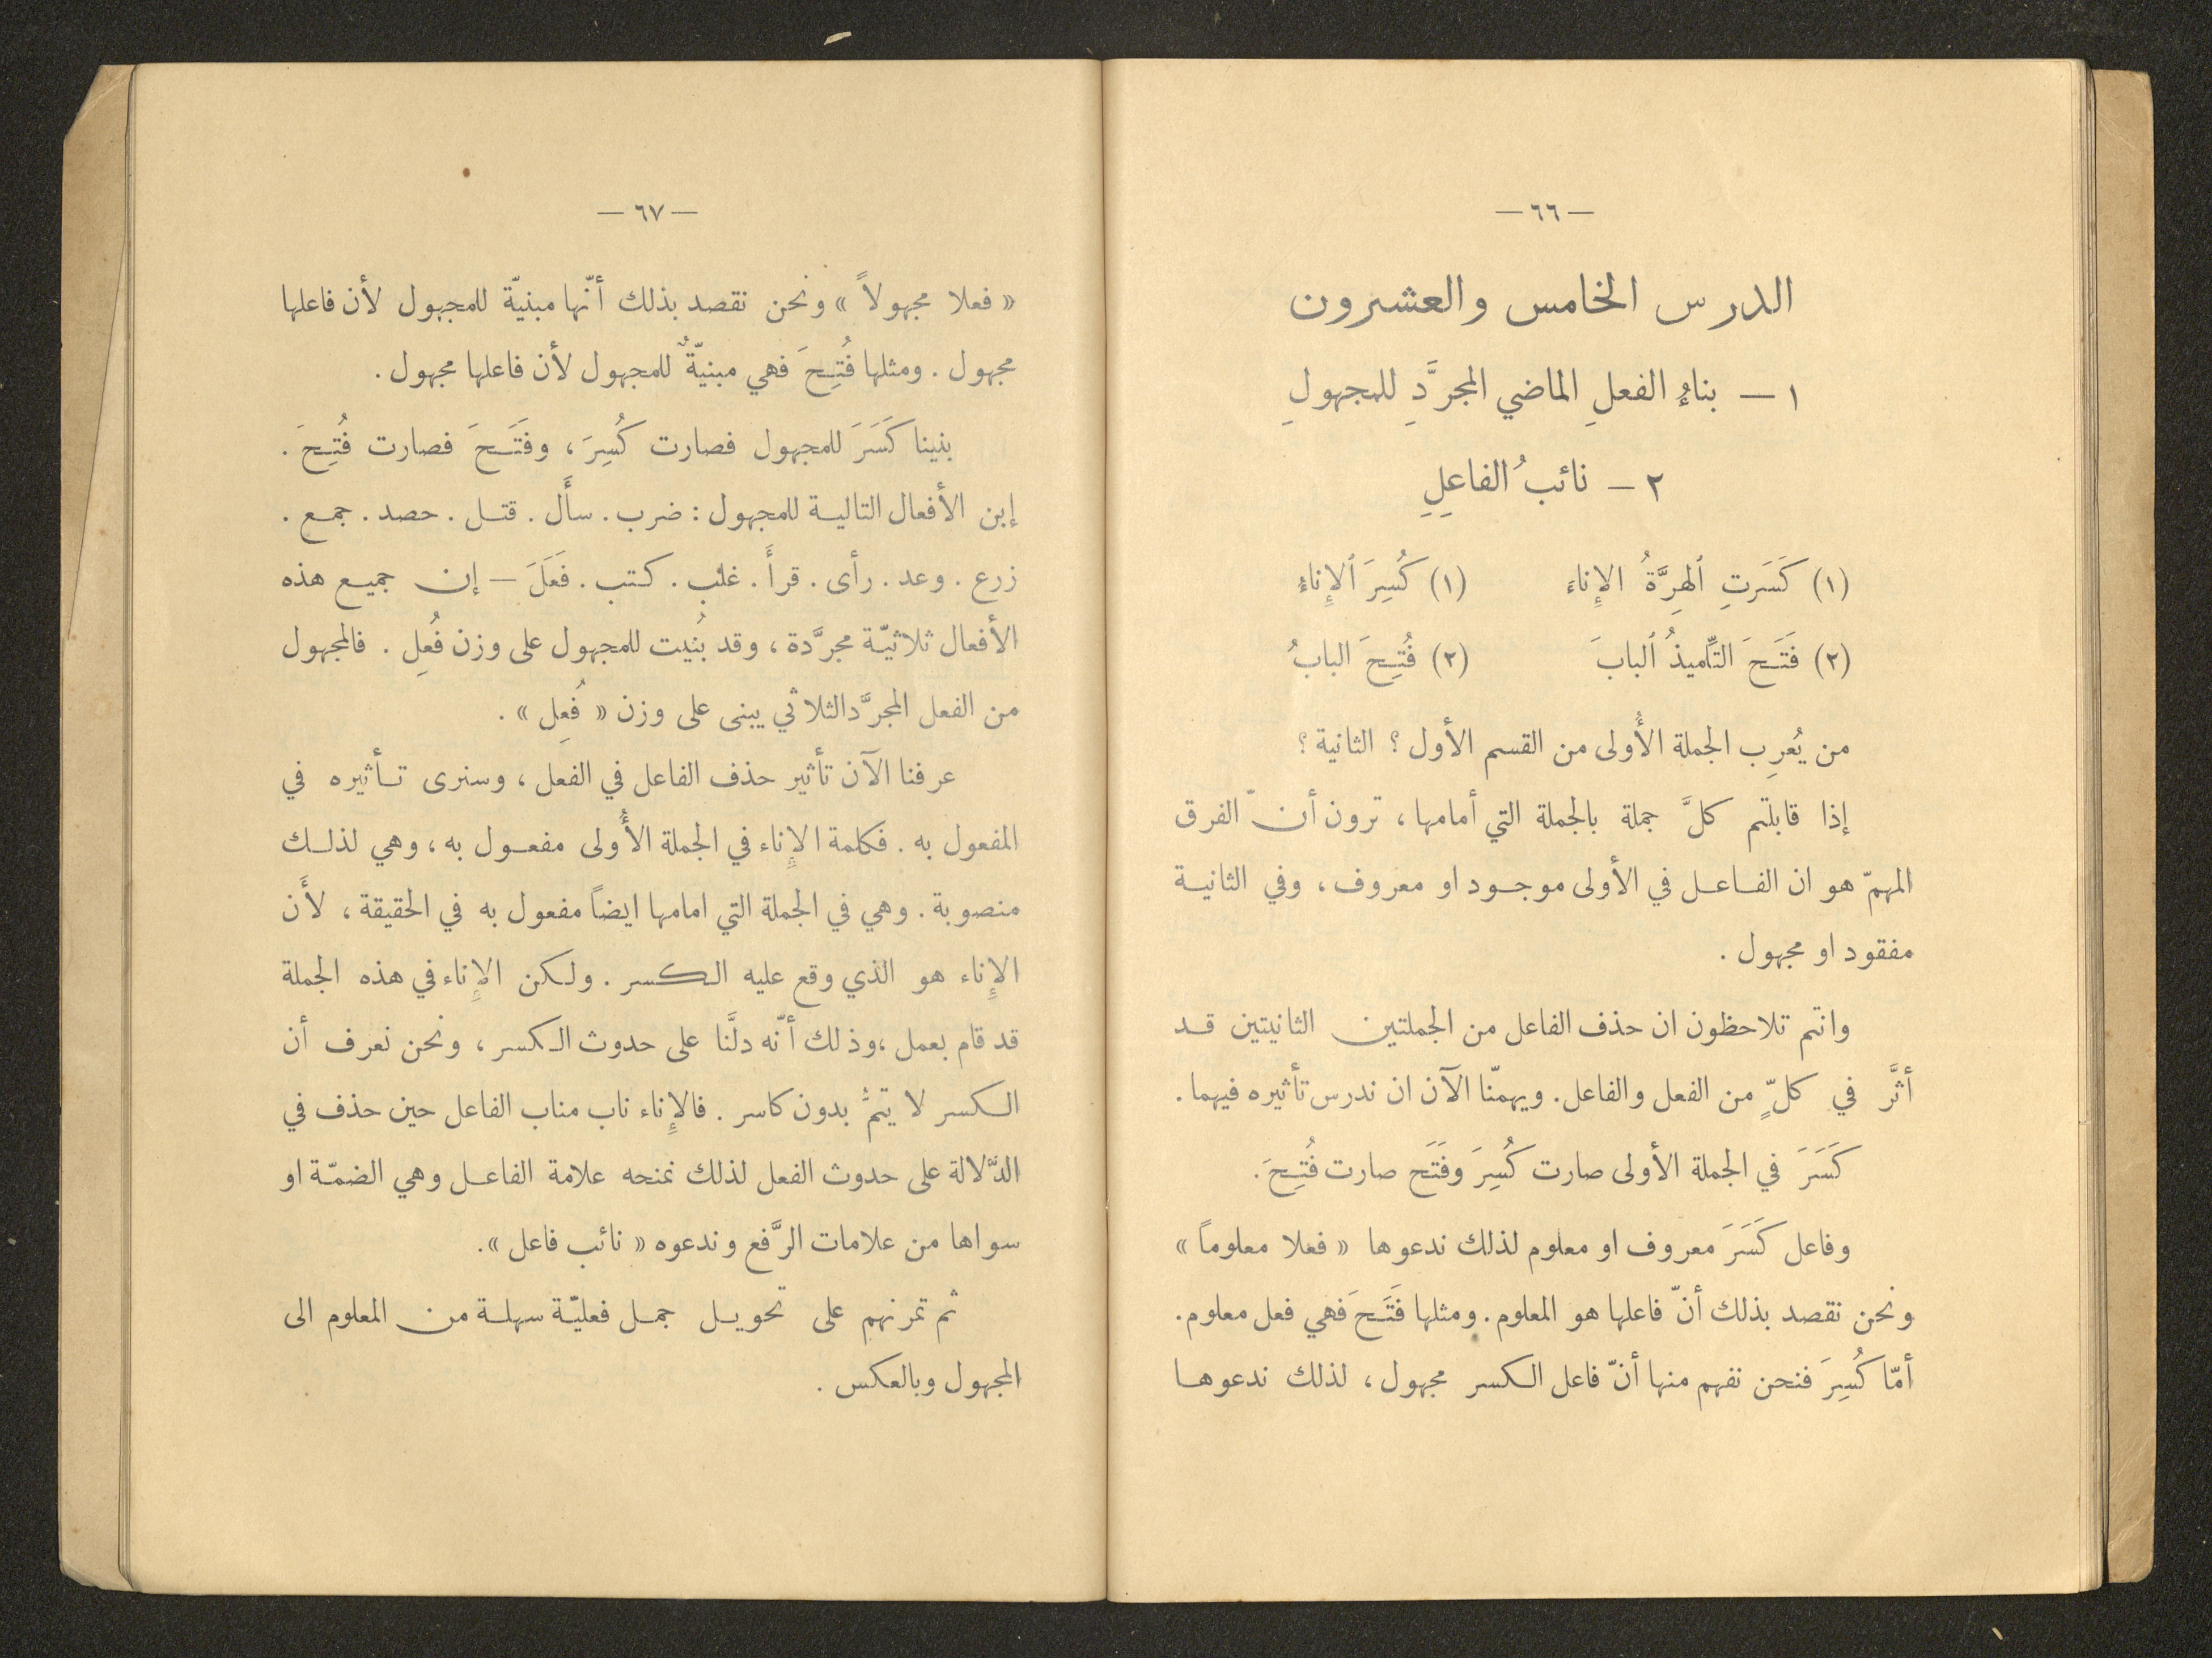 — ٦٦ —
الدرس الخامس والعشرون
١ — بناءُ الفعلِ الماضي المجرَّدِ للمجهولِ
٢ — نائبُ الفاعِلِ
(١) كَسَرَتِ ٱلهِرَّةُ الإِناءَ (١) كُسِرَ ٱلإِناءُ
(٢) فَتَحَ التِّلميذُ ٱلبابَ (٢) فُتِحَ البابُ
من يُعرِب الجملة الأُولى من القسم الأول ؟ الثانية ؟
إذا قابلتم كلَّ جملة بالجملة التي أمامها ، ترون أنّ الفرق
المهمّ هو ان الفاعل في الأولى موجود او معروف ، وفي الثانية
مفقود او مجهول .
وانتم تلاحظون ان حذف الفاعل من الجملتين الثانيتين قد
أثَّر في كلٍّ من الفعل والفاعل . ويهمّنا الآن ان ندرس تأثيره فيهما .
كَسَرَ في الجملة الأولى صارت كُسِرَ وفَتَح صارت فُتِحَ .
وفاعل كَسَرَ معروف او معلوم لذلك ندعوها « فعلا معلوماً »
ونحن نقصد بذلك أنّ فاعلها هو المعلوم . ومثلها فَتَحَ فهي فعل معلوم .
أمّا كُسِرَ فنحن نفهم منها أنّ فاعل الكسر مجهول ، لذلك ندعوها
— ٦٧ —
« فعلا مجهولاً » ونحن نقصد بذلك أنّها مبنيّة للمجهول لأن فاعلها
مجهول . ومثلها فُتِحَ فهي مبنيّةٌ للمجهول لأن فاعلها مجهول .
بنينا كَسَرَ للمجهول فصارت كُسِرَ ، وفَتَحَ فصارت فُتِحَ .
إبن الأفعال التالية للمجهول : ضرب . سأَل . قتل . حصد . جمع .
زرع . وعد . رأى . قرأَ . غلب . كتب . فَعَلَ — إن جميع هذه
الأفعال ثلاثيّة مجرَّدة ، وقد بُنيت للمجهول على وزن فُعِل . فالمجهول
من الفعل المجرَّد الثلاثي يبنى على وزن « فُعِل » .
عرفنا الآن تأثير حذف الفاعل في الفعل ، وسنرى تأثيره في
المفعول به . فكلمة الإِناء في الجملة الأُولى مفعول به ، وهي لذلك
منصوبة . وهي في الجملة التي امامها ايضاً مفعول به في الحقيقة ، لأَن
الإِناء هو الذي وقع عليه الكسر . ولكن الإِناء في هذه الجملة
قد قام بعمل ، وذلك أنّه دلَّنا على حدوث الكسر ، ونحن نعرف أن
الكسر لا يتمُّ بدون كاسر . فالإِناء ناب مناب الفاعل حين حذف في
الدَّلالة على حدوث الفعل لذلك نمنحه علامة الفاعل وهي الضمّة او
سواها من علامات الرَّفع وندعوه « نائب فاعل » .
ثم تمرنهم على تحويل جمل فعليّة سهلة من المعلوم الى
المجهول وبالعكس .